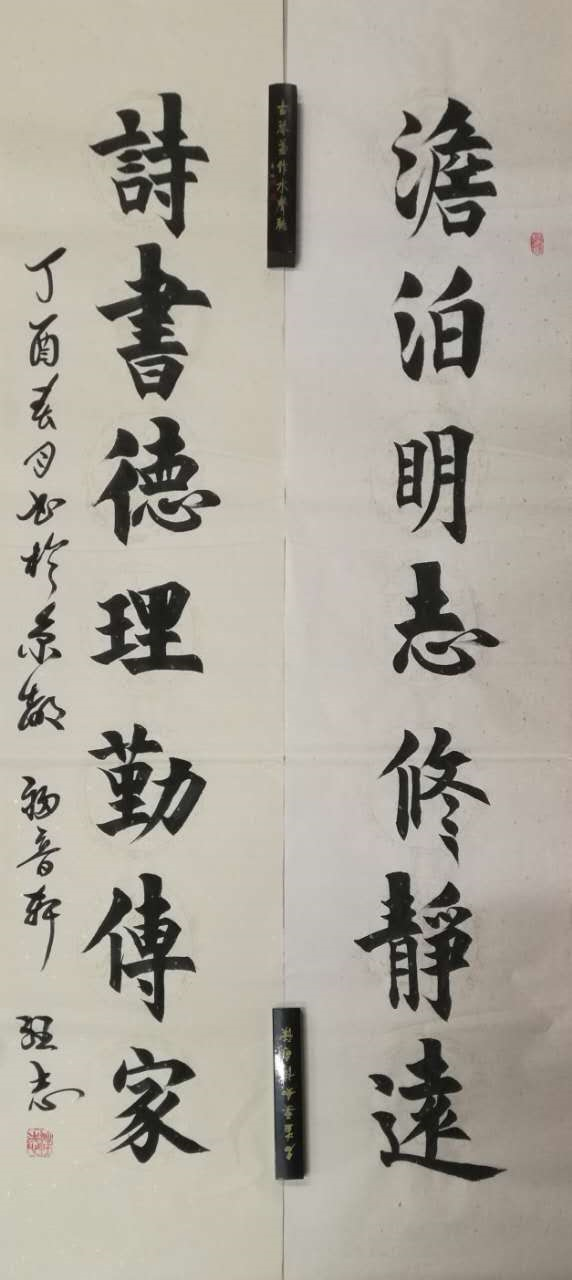 澹泊明志修靜遠
詩書德理勤傳家
丁酉春月書於京都 福音軒 志